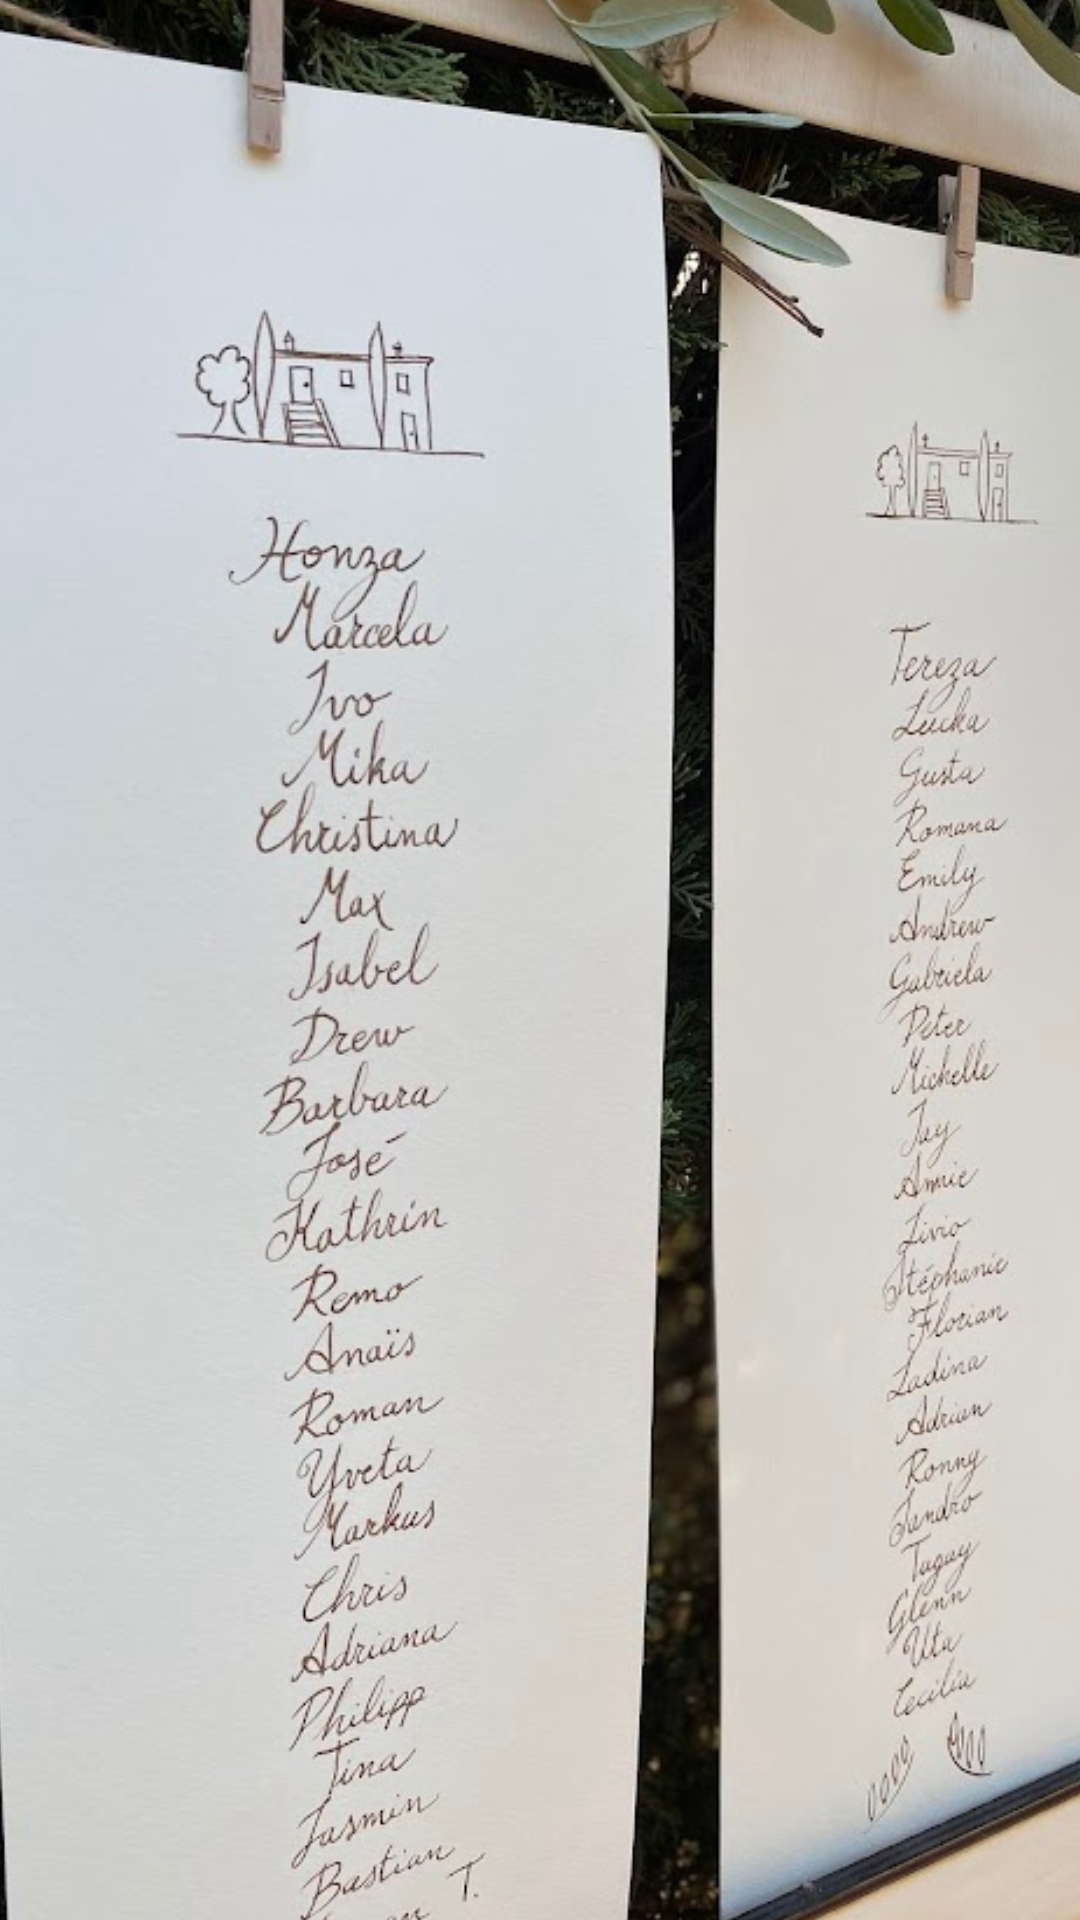 Honza
Marcela
Ivo
Mika
Christina
Max
Isabel
Drew
Barbara
José
Kathrin
Remo
Anaïs
Roman
Yveta
Markus
Chris
Adriana
Philipp
Tina
Jasmin
Bastian
T.
Tereza
Lucka
Gusta
Romana
Emily
Andrew
Gabriela
Peter
Michelle
Jay
Annie
Livio
Stéphanie
Florian
Ladina
Adrian
Ronny
Sandro
Tugay
Glenn
Uta
Cecilia